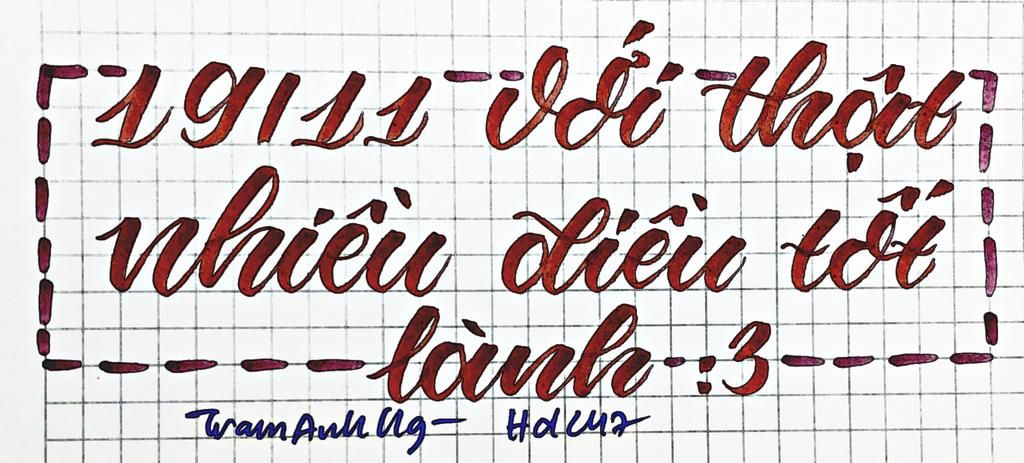 19/11 với thật
nhiều điều tốt
lành :3
TramAnhNg -